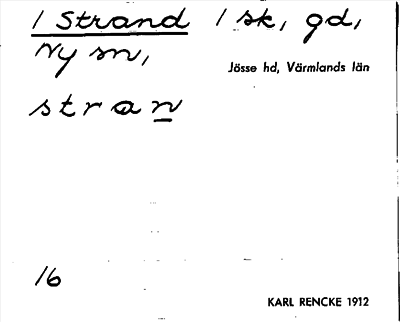 1 Strand 1 sk, gd,
Ny sn,
Jösse hd, Värmlands län
stran
16
KARL RENCKE 1912